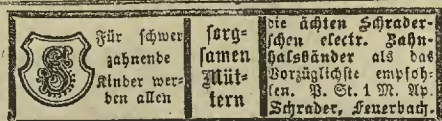 S
Für schwer
zahnende
Kinder wer-
den allen
sorg-
samen
Müt-
tern
die ächten Schrader-
schen electr. Zahn-
halsbänder als das
Vorzüglichste empfoh-
len. P. St. 1 M. Ap.
Schrader, Feuerbach.